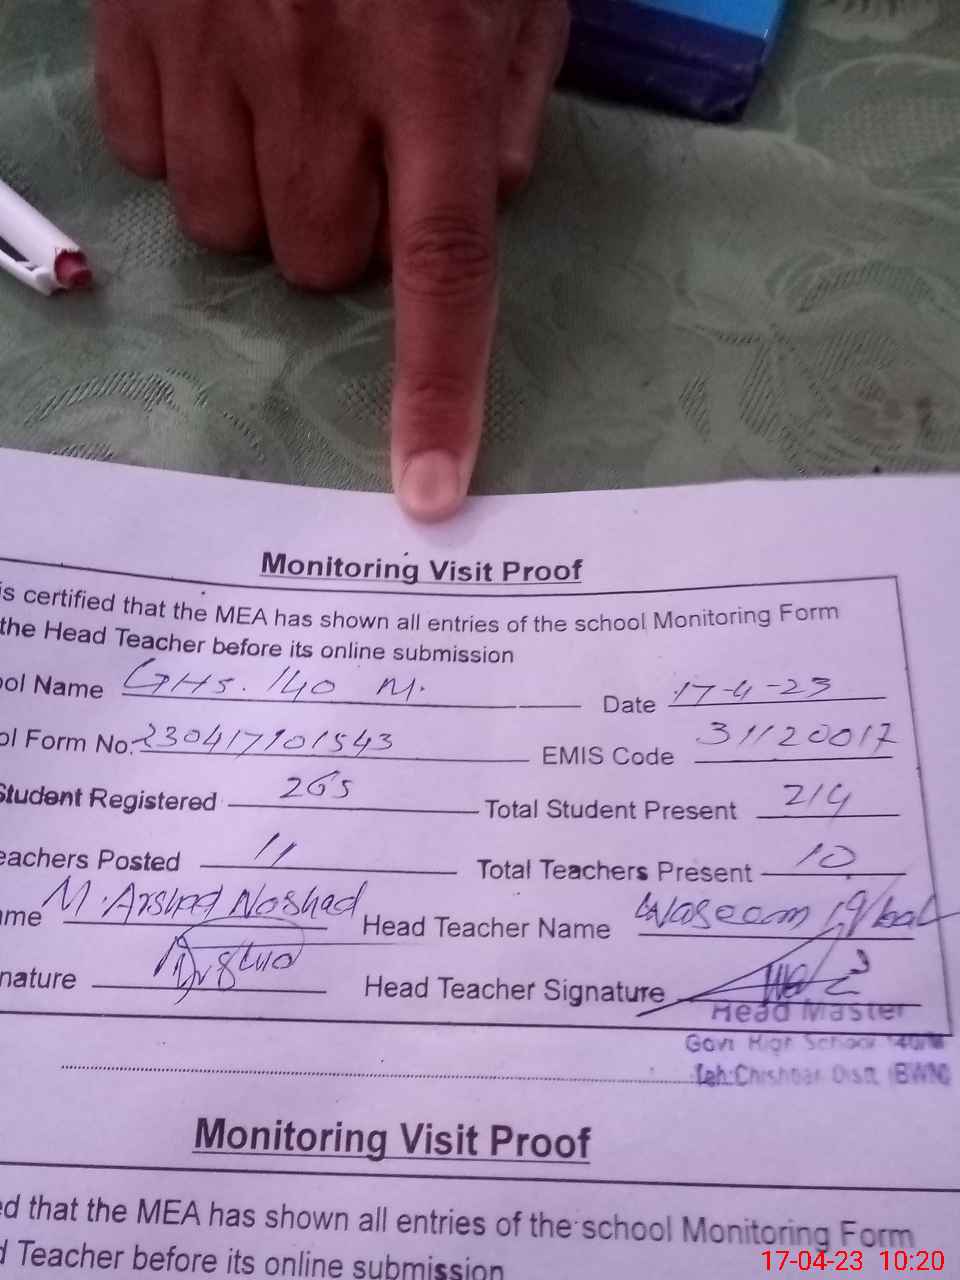 Monitoring Visit Proof
is certified that the MEA has shown all entries of the school Monitoring Form
the Head Teacher before its online submission
ool Name GHS. 140 M. Date 17-4-23
ol Form No. 230417101543 EMIS Code 31120017
Student Registered 265 Total Student Present 214
eachers Posted 11 Total Teachers Present 10
ame M. Arshad Noshad Head Teacher Name Waseem Iqbal
nature Head Teacher Signature
Head Master
Govt High School 140/M
Teh: Chishtian Distt (BWN)
Monitoring Visit Proof
ed that the MEA has shown all entries of the school Monitoring Form
d Teacher before its online submission
17-04-23 10:20